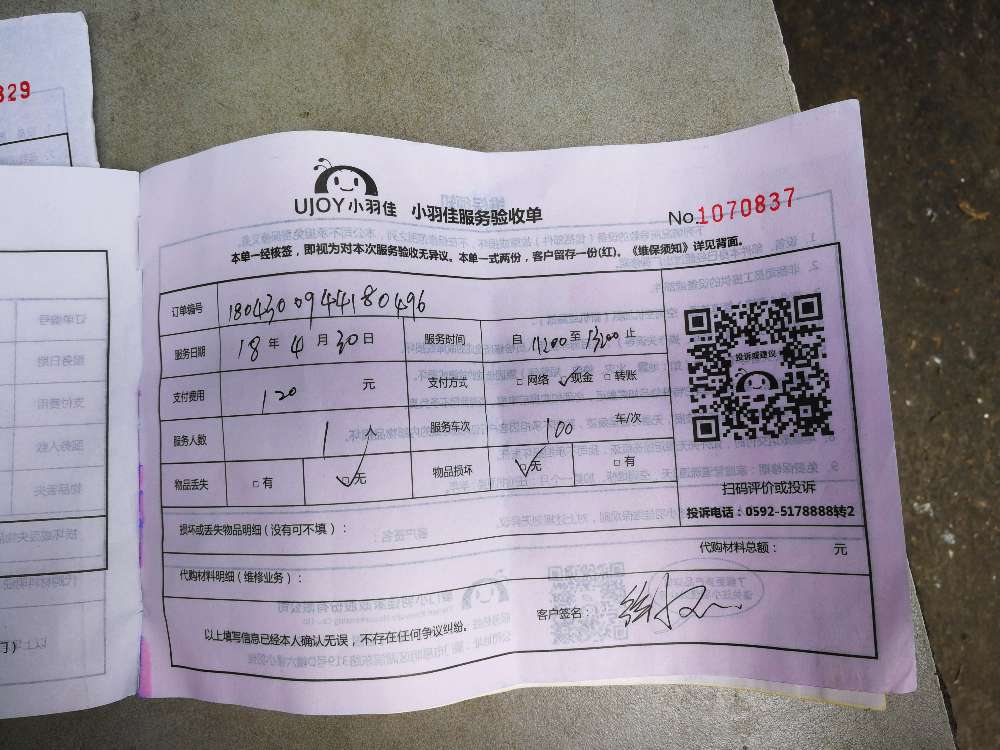 329
UJOY小羽佳 小羽佳服务验收单
No.1070837
本单一经核签，即视为对本次服务验收无异议。本单一式两份，客户留存一份(红)。《维保须知》详见背面。
订单编号 1804300944180496
服务日期 18 年 4 月 30 日 服务时间 自 11200 至 13200 止
支付费用 120 元 支付方式 □网络 ✓现金 □转账
服务人数 1 人 服务车次 100 车/次
物品丢失 □有 ✓无 物品损坏 ✓无 □有
投诉或建议
扫码评价或投诉
投诉电话：0592-5178888转2
损坏或丢失物品明细（没有可不填）：
代购材料总额： 元
代购材料明细（维修业务）：
客户签名：
以上填写信息已经本人确认无误，不存在任何争议纠纷。